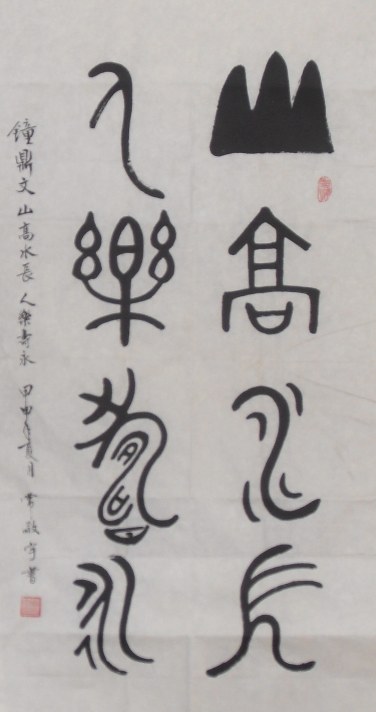 山高水長
人樂壽永
鐘鼎文 山高水長 人樂壽永 甲申年夏月 敬宇書